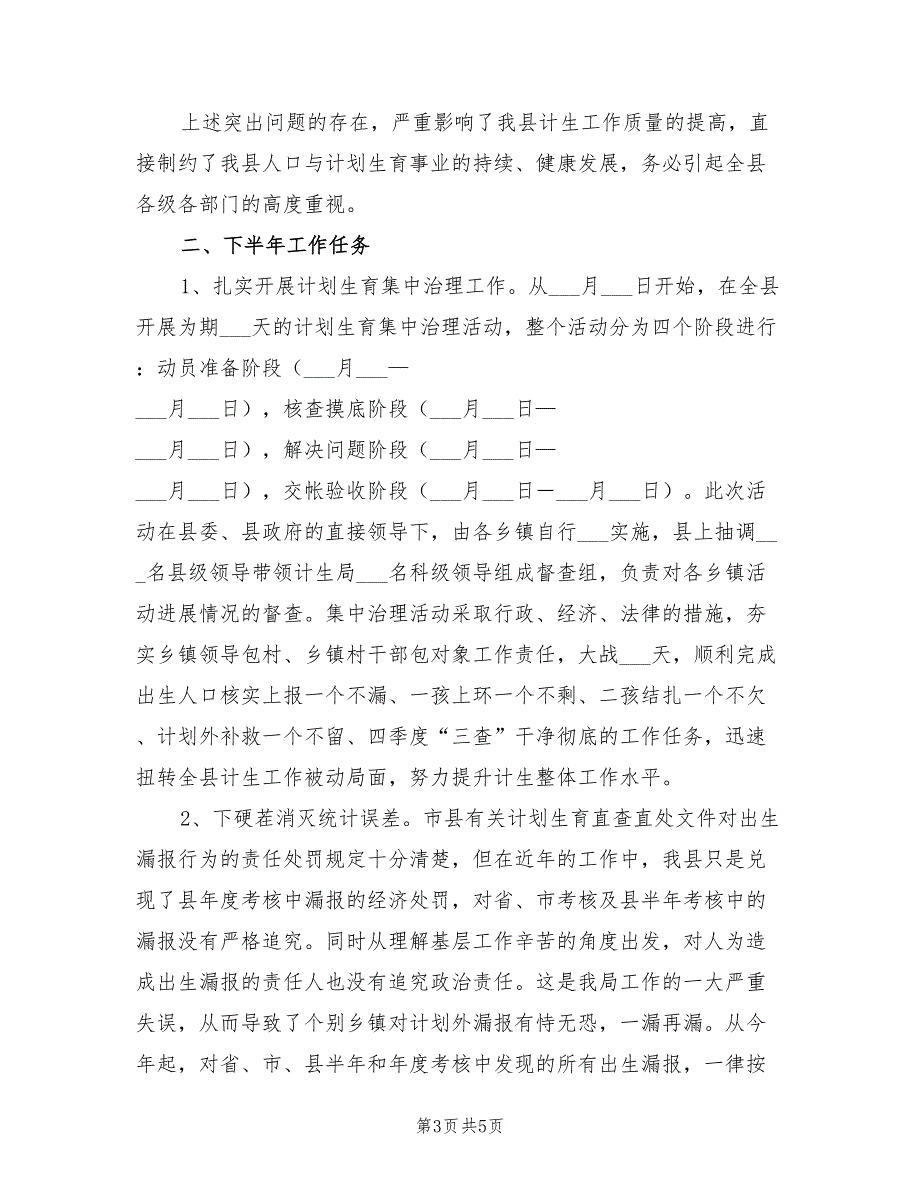 上述突出问题的存在，严重影响了我县计生工作质量的提高，直
接制约了我县人口与计划生育事业的持续、健康发展，务必引起全县
各级各部门的高度重视。
二、下半年工作任务
1、扎实开展计划生育集中治理工作。从___月___日开始，在全县
开展为期___天的计划生育集中治理活动，整个活动分为四个阶段进行
：动员准备阶段（___月___—
___月___日），核查摸底阶段（___月___日—
___月___日），解决问题阶段（___月___日—
___月___日），交帐验收阶段（___月___日－___月___日）。此次活
动在县委、县政府的直接领导下，由各乡镇自行___实施，县上抽调__
_名县级领导带领计生局___名科级领导组成督查组，负责对各乡镇活
动进展情况的督查。集中治理活动采取行政、经济、法律的措施，夯
实乡镇领导包村、乡镇村干部包对象工作责任，大战___天，顺利完成
出生人口核实上报一个不漏、一孩上环一个不剩、二孩结扎一个不欠
、计划外补救一个不留、四季度“三查”干净彻底的工作任务，迅速
扭转全县计生工作被动局面，努力提升计生整体工作水平。
2、下硬茬消灭统计误差。市县有关计划生育直查直处文件对出生
漏报行为的责任处罚规定十分清楚，但在近年的工作中，我县只是兑
现了县年度考核中漏报的经济处罚，对省、市考核及县半年考核中的
漏报没有严格追究。同时从理解基层工作辛苦的角度出发，对人为造
成出生漏报的责任人也没有追究政治责任。这是我局工作的一大严重
失误，从而导致了个别乡镇对计划外漏报有恃无恐，一漏再漏。从今
年起，对省、市、县半年和年度考核中发现的所有出生漏报，一律按
第3页共5页